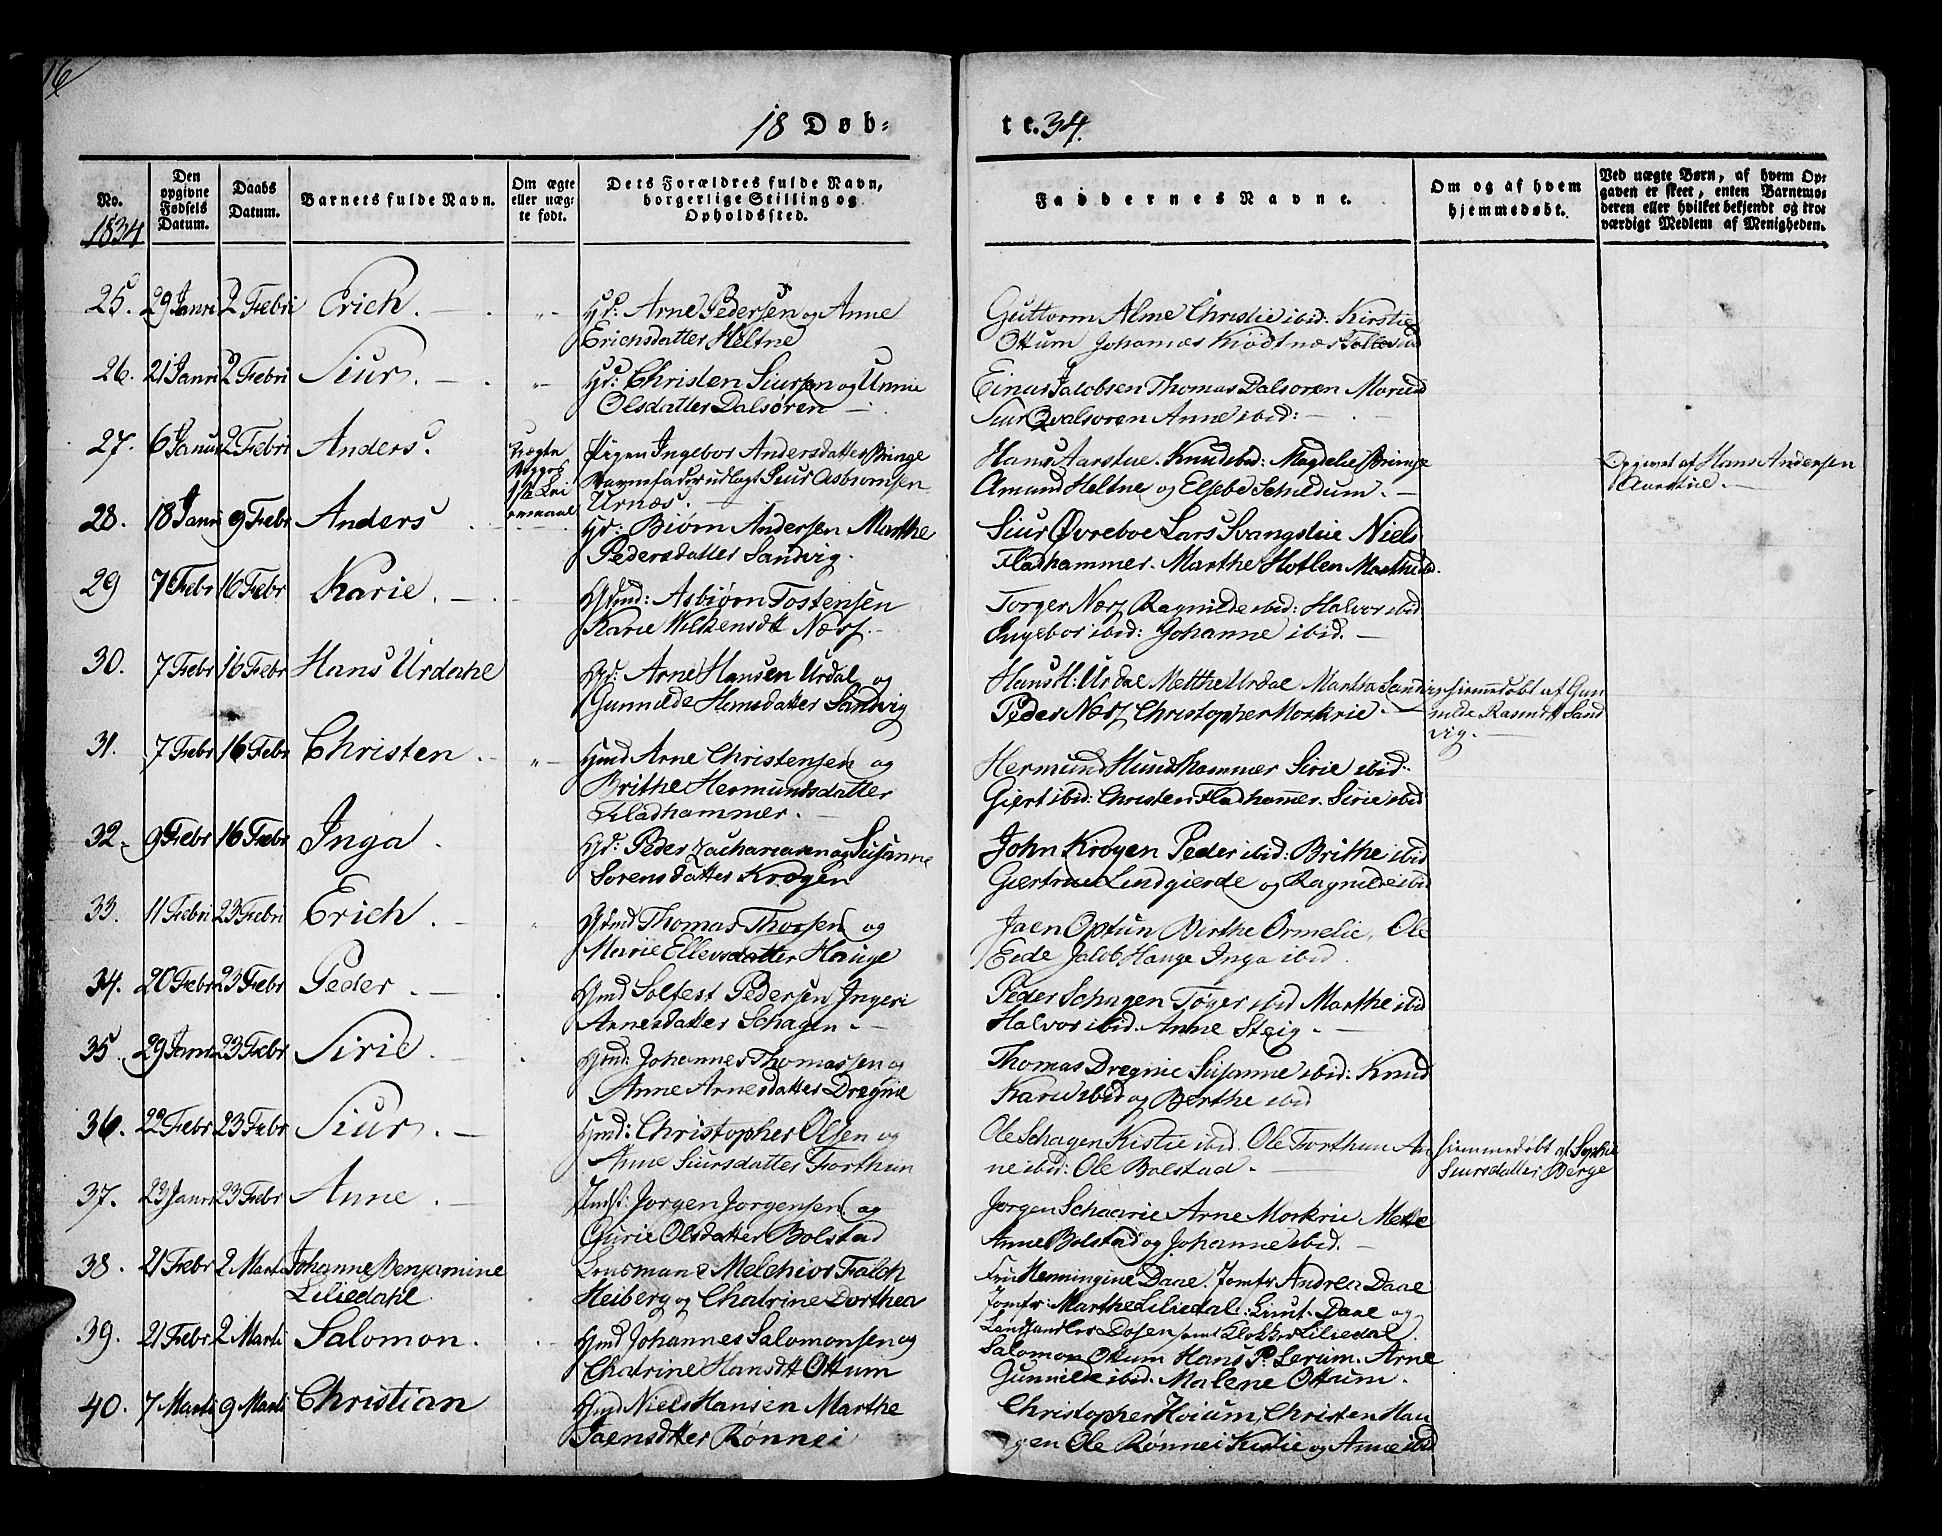 16
18 Døb-
te. 34.
No.
1834
Den opgivne Fødsels Datum.
Daabs Datum.
Barnets fulde Navn.
Om ægte eller uægte født.
Dets Forældres fulde Navn, borgerlige Stilling og Opholdssted.
Faddernes Navne.
Om og af hvem hjemmedøbt.
Ved uægte Børn, af hvem Opgaven er skeet, enten Barnemoderen eller hvilket bekjendt og troværdigt Medlem af Menigheden.
25. 29 Janri 2 Febri Erich. Gd: Arne Pedersen og Anne
Erichsdatter Heltne
Guttorm Alme Christie ibid: Kirstie
Ottum Johannes
26. 21 Janri 2 Febri Siur. Gd: Christen Siursen og Unnie
Olsdatter Dalsøren
Einar Jacobsen Thomas Dalsøren
Siur Qvalsoren Anne ibid:
27. 6 Janu 2 Febri Anders Uægte
Pigen Ingebor Andersdatter Bringe
Barnefader udlagt Siur Asbiornsen
Urnæs.
Hans Aarstue. Knud ibid: Magdelie Bringe
Amund Heltne og Elsebe Schildum.
Opgivet af Hans Andersen
Aarstue.
28. 18 Janu 9 Febr Anders Gd: Biørn Andersen Marthe
Pedersdatter Sandvig.
Siur Øvreboe Lars Svangstue Niels
Fladhammer. Marthe Hotlen Marthe ibid.
29 7 Febr 16 Febr Karie. Hsmd: Asbiørn Tostensen
Karie Wilkensdtt Næss.
Torger Næss Ragnilde ibid: Halvor ibid
Ingebor ibid: Johanne ibid.
30. 7 Febr 16 Febr Hans Urdahl Gd: Arne Hansen Urdal og
Gunnilde Hansdatter Sandvig
Hans H: Urdal Metthe Urdal Martha Sandvig
Peder Næss Christopher Morkrie
hiemmedøbt af Gun
nilde Rasmdtt Sand
vig.
31. 7 Febr 16 Febr Christen Hmd Arne Christensen og
Brithe Hermundsdatter
Fladhammer.
Hermund Hundshammer Sirie ibid:
Giert ibid: Christen Fladhammer. Sirie ibid
32. 9 Febr 16 Febr Inga. Gd: Peder Zachariasen og Susanne
Sorensdatter Krogen
John Krogen Peder ibid: Brithe ibid
Giertrue Lindgierde og Ragnilde ibid
33. 11 Febri 23 Febri Erich. Hsmd Thomas Thorsen og
Marie Ellevsdatter Hauge
Jaen Optun Birthe Ormelie, Ole
Eide Jacob Hauge Inga ibid.
34. 20 Febr 23 Febr Peder. Hmd Solfest Pedersen Ingeri
Arnesdatter Schagen.
Peder Schagen Tøger ibid Marthe ibid
Halvor ibid. Anne Steig.
35. 29 Janu 23 Febr Sirie. Hmd: Johannes Thomassen og
Anne Arnesdatter Dregnie
Thomas Dregnie Susanne ibid: Knud
Karie ibid og Berthe ibid
36. 22 Febr 23 Febr Siur. Hmd: Christopher Olsen og
Anne Siursdatter Forthun
Ole Schagen Kistie ibid. Ole Forthun An
ne ibid: Ole Bolstad.
hiemmedøbt af Sophie
Siursdatter Berge
37. 23 Janri 23 Febr Anne. Jorgen Jorgensen og
Gurie Olsdatter Bolstad
Jorgen Schaarie Arne Morkrie Mette
Anne Bolstad og Johanne ibid.
38. 21 Febr 2 Marti Johanne Benjamine
Liliedahl
Lensmand Melchior Falch
Heiberg og Chatrine Dorthea
Fru Henningine Daae. Jomfr Andrea Daae
Jomfr: Marthe Liliedal. Lieut. Daae og
Landhandler Dosen samt Klokker Liliedal.
39. 21 Febr 2 Marti Salomon. Hmd Johannes Salomonsen og
Chatrine Hansdtt Ottum
Salomon Ottum Hans P. Lerum. Arne
Gunnilde ibid. Malene Ottum.
40. 7 Marti 9 Marti Christian Hmd Niels Hansen Marthe
Jaensdtter Rønnei
Christopher Hoium, Christen Hau
gen Ole Rønnei Kistie og Anne ibid